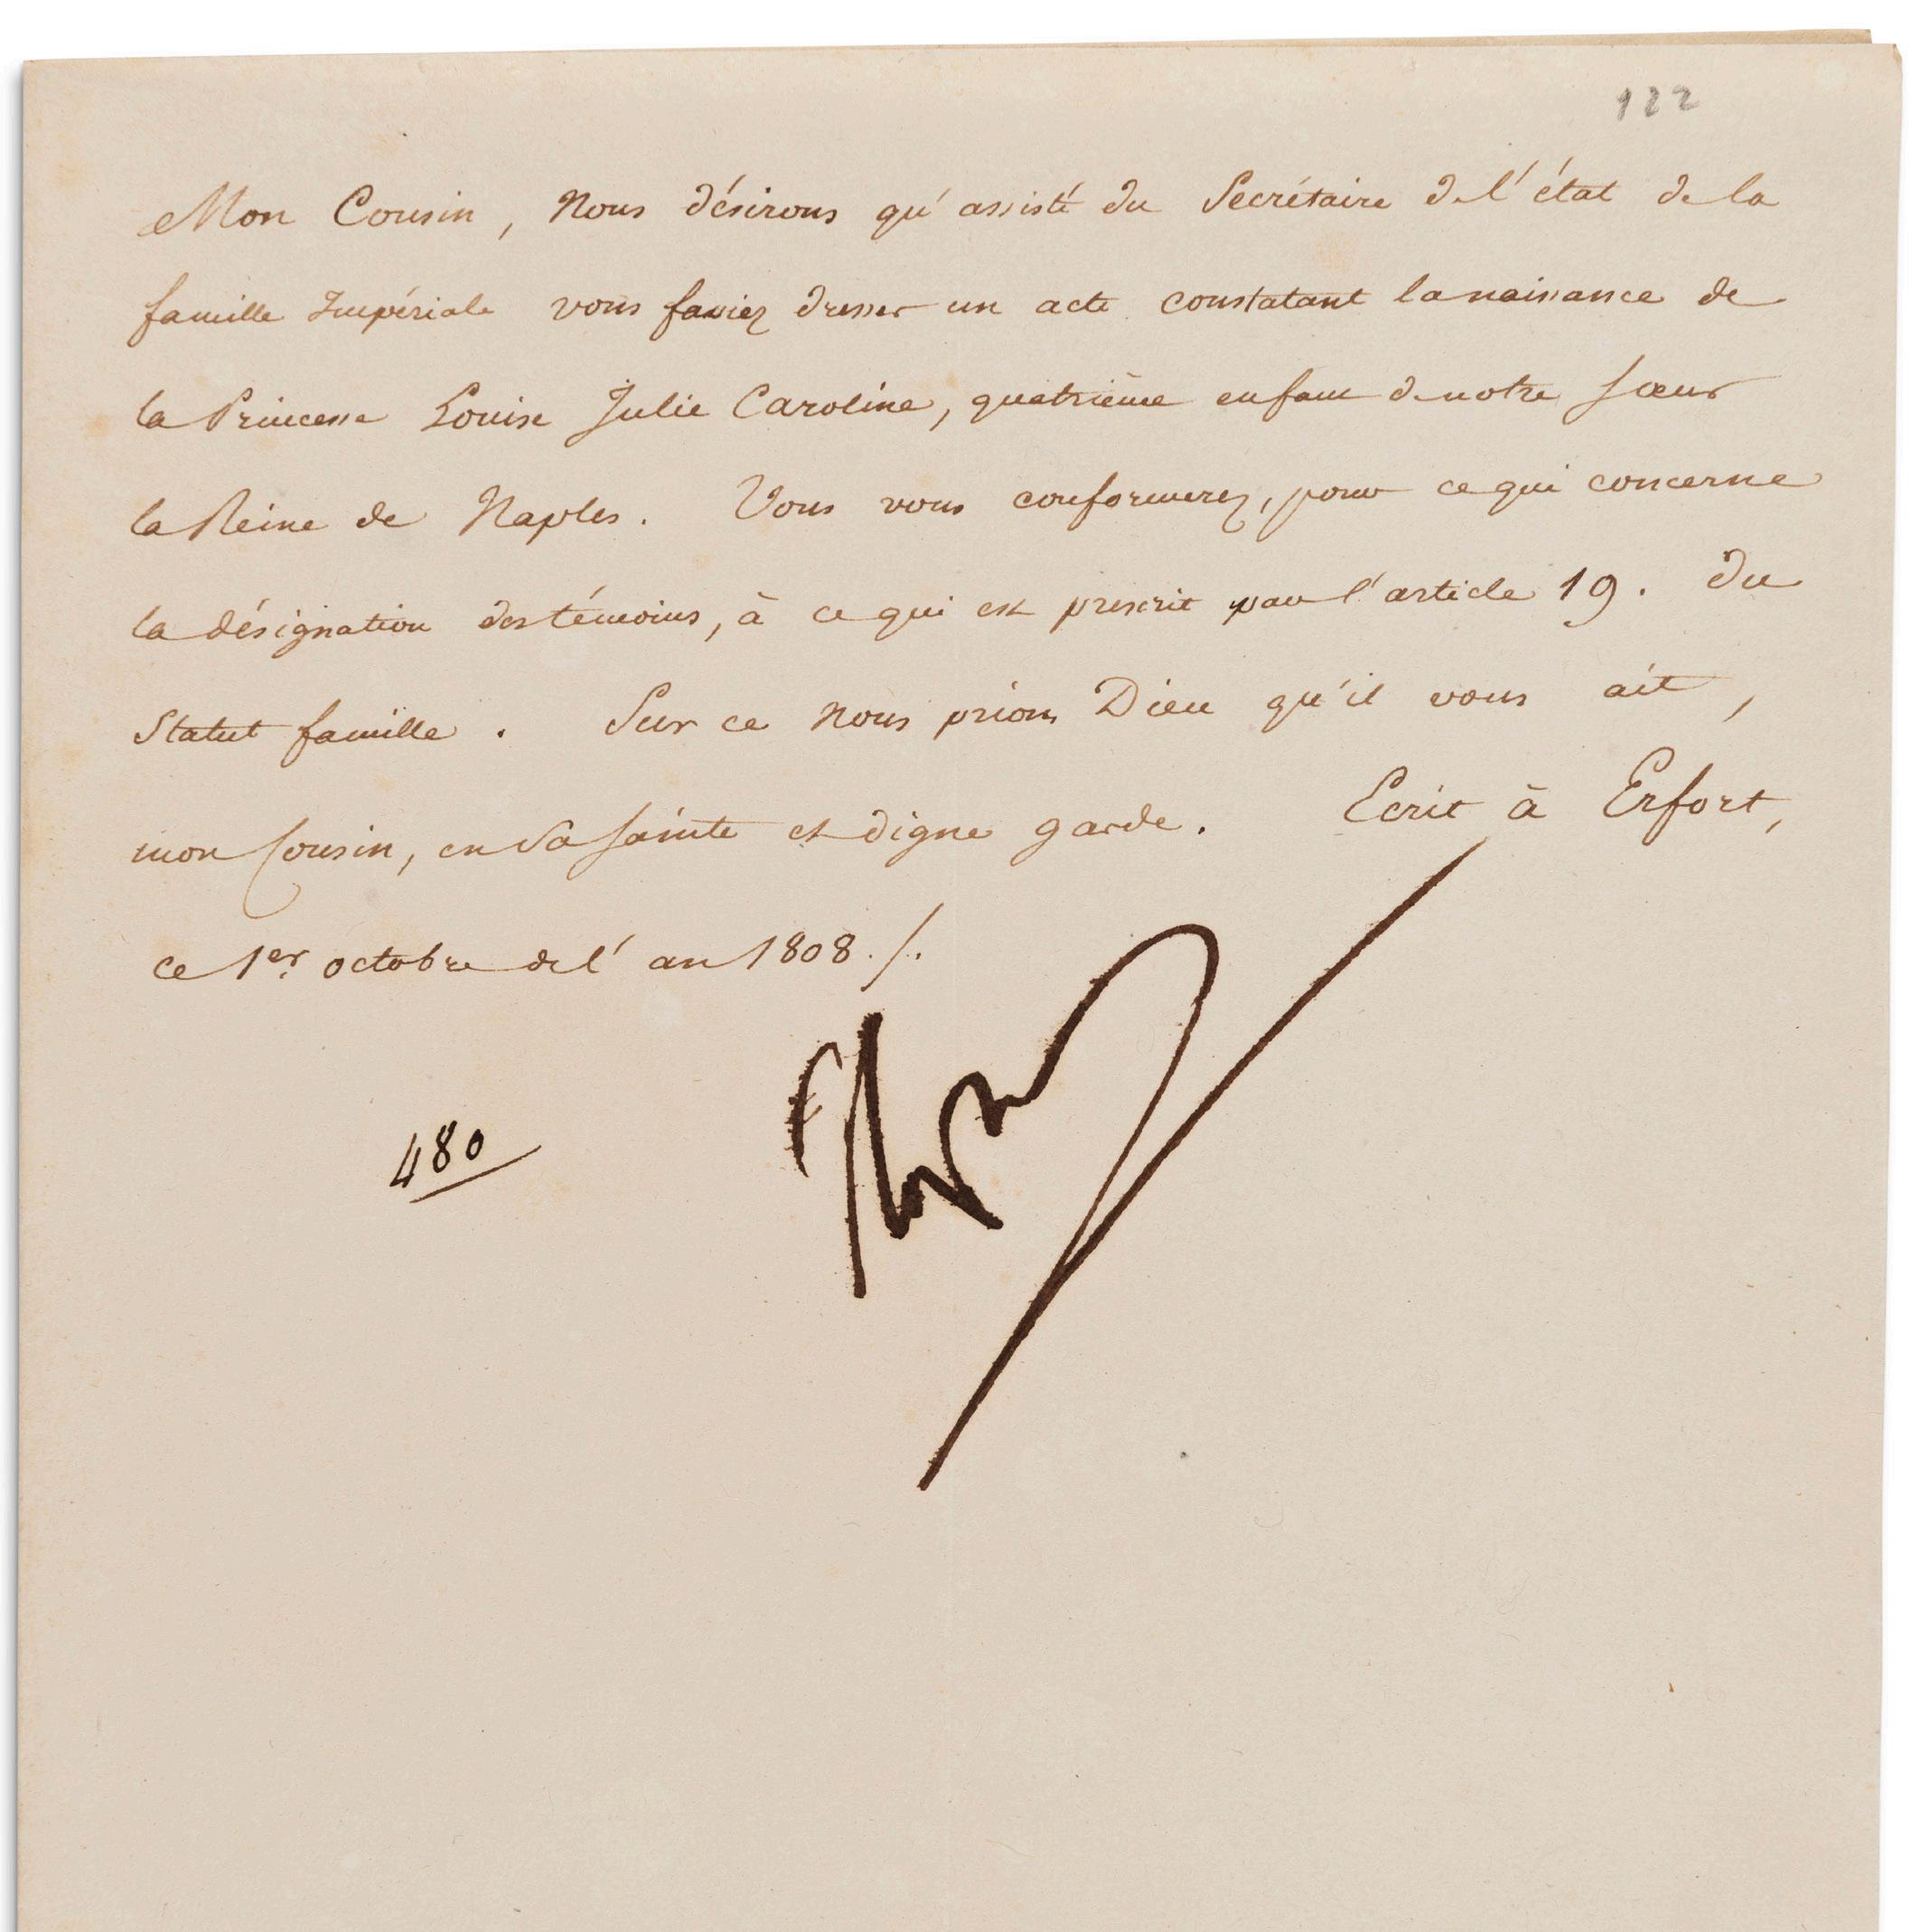 122
Mon Cousin, Nous désirons qu'assisté du Secrétaire de l'état de la
famille Impériale vous fassiez dresser un acte constatant la naissance de
la Princesse Louise Julie Caroline, quatrième enfant de notre sœur
la Reine de Naples. Vous vous conformerez, pour ce qui concerne
la désignation des témoins, à ce qui est prescrit par l'article 19. du
Statut famille. Sur ce nous prions Dieu qu'il vous ait,
mon Cousin, en Sa Sainte et digne garde. Ecrit à Erfort,
ce 1er octobre de l'an 1808./.
480